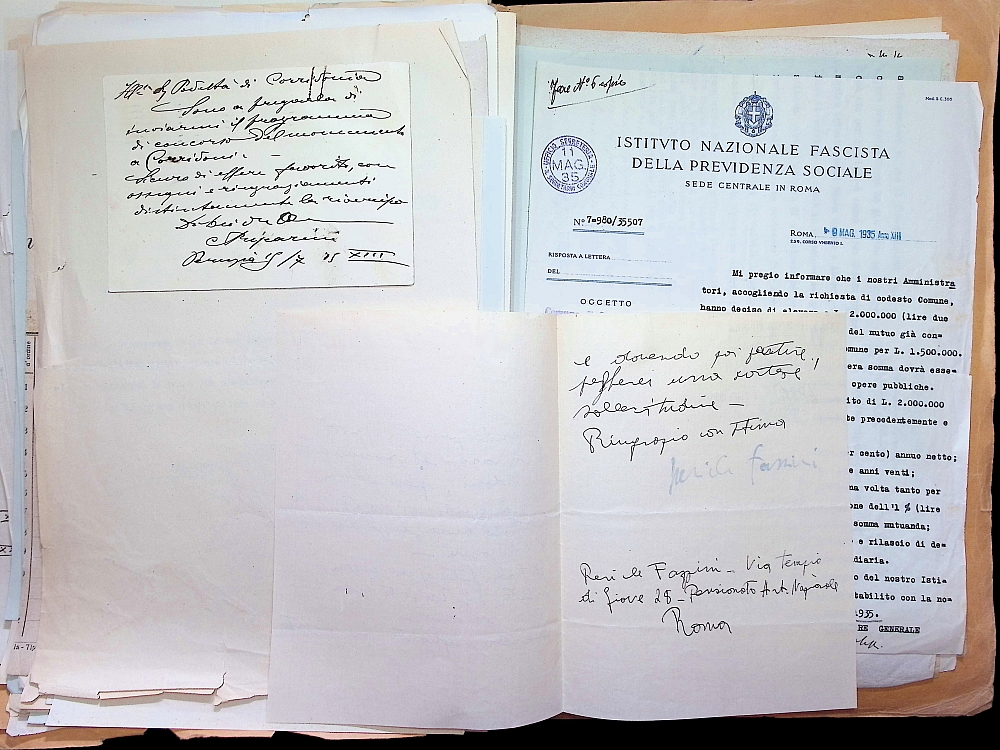 Podestà di Corridonia
Sono a pregarla di
inviarmi il programma
di concorso del monumento
a Corridoni.
Sicuro di essere favorito, con
ossequi e ringraziamenti
distintamente la riverisco
Perugia 15/7 35 XIII
Fare N° 6 copie
Mod. S C. 300
ISTITUTO NAZIONALE FASCISTA
DELLA PREVIDENZA SOCIALE
SEDE CENTRALE IN ROMA
11
MAG.
35
N° 7=980/35507
ROMA, 9 MAG. 1935 Anno XIII
239, CORSO UMBERTO I.
RISPOSTA A LETTERA
DEL
OGGETTO
Mi pregio informare che i nostri Amministra
tori, accogliendo la richiesta di codesto Comune,
hanno deciso di 2.000.000 (lire due
del mutuo già con=
per L. 1.500.000.
somma dovrà esse=
opere pubbliche.
di L. 2.000.000
precedentemente e
cento) annuo netto;
anni venti;
volta tanto per
dell'1 % (lire
somma mutuanda;
e rilascio di de=
del nostro Isti=
con la no=
1935.
GENERALE
e dovendo poi partire,
una cortese
sollecitudine –
Ringrazio con stima
Pericle Fazzini
Pericle Fazzini – Via tempio
di Giove 28 – Pensionato Art. Nazionale
Roma